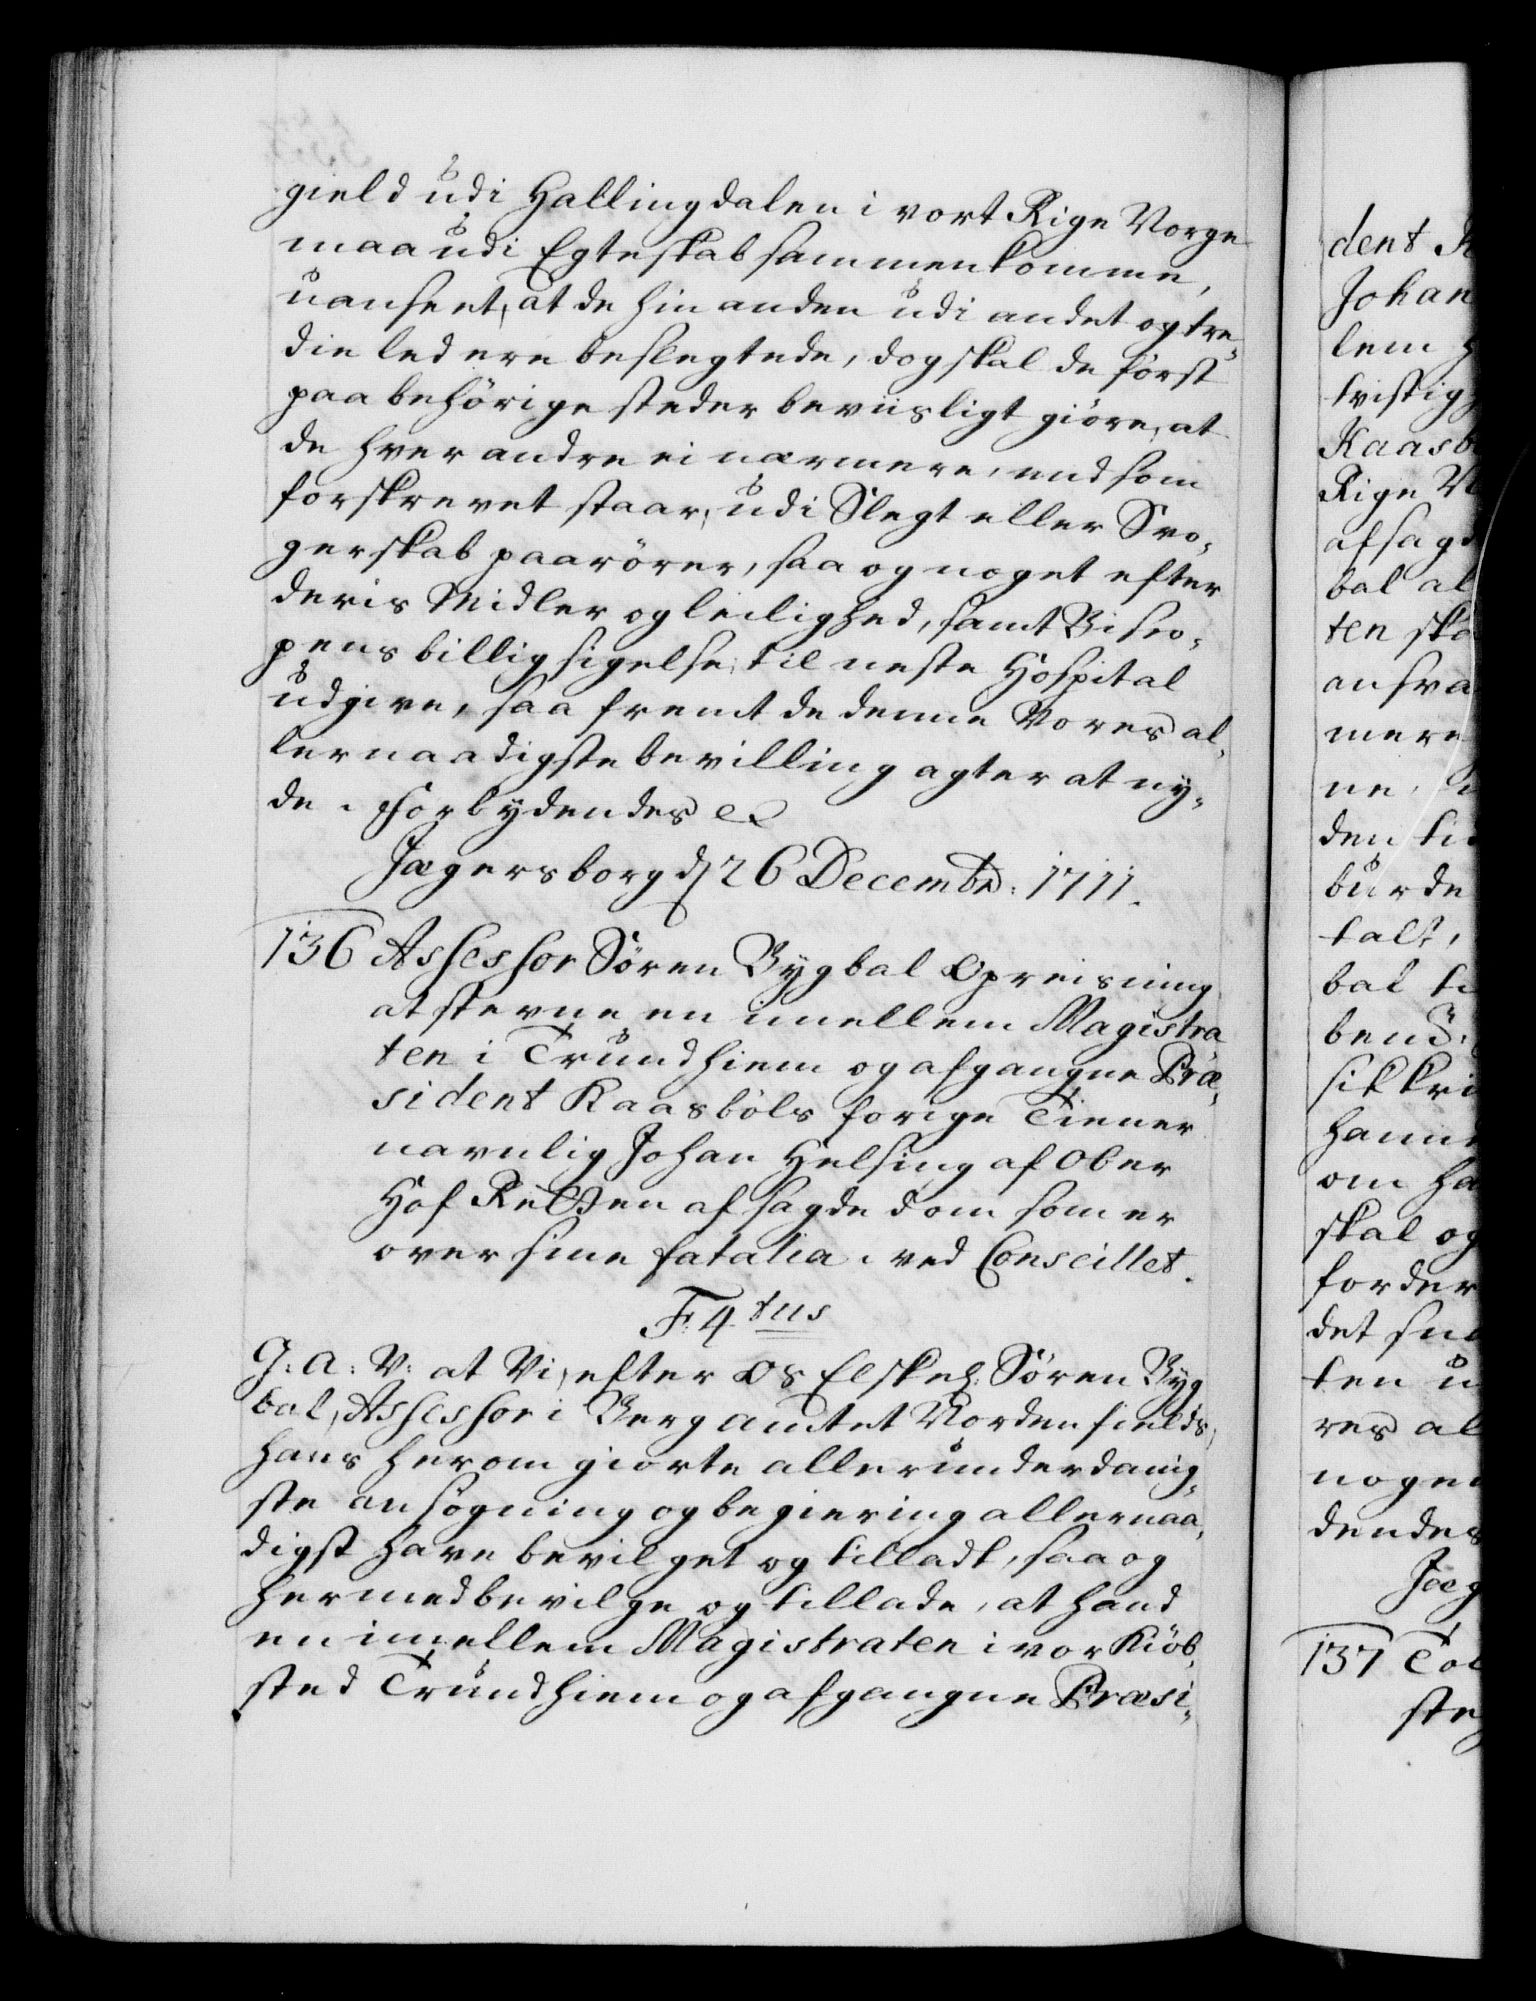 gield udi Hallingdalen i vort Rige Norge
maa udi Egteskab sammenkomme,
uanseet, at de hinanden udi andet og tre-
die led ere beslegtede, dog skal de først
paa behörige steder beviisligt giøre, at
de hverandre ei nærmere, end som
forskrevet staar, udi Slegt eller Svo-
gerskab paarörer, saa og noget efter
deris Midler og leilighed, samt Bisco-
pens billigsigelse, til neste Hospital
udgive, saa fremt de denne Vores al-
lernaadigste bevilling agter at ny-
de. Forbydendes
Jægersborg d 26 Decembr: 1711.
136 Assessor Sören Bygbal Opreisning
at stevne en imellem Magistra
ten i Trundhiem og afgangne Præ-
sident Kaasböls forige Tiener
navnlig Johan Helsing af Ober
Hof Retten afsagde dom som er
over sine fatalia. ved Conseillet.
F: 4tus
G: A: V: at Vi, efter os Elskel: Sören Byg
bal, Assessor i Bergamtet Nordenfields,
hans herom giorte allerunderdanig-
ste ansögning og begiering allernaa-
digst have bevilget og tilladt, saa og
hermed bevilge og tillade, at hand
en imellem Magistraten i vor Kiöb-
sted Trundhiem og afgangne Præsi-
dent
Johan
lem
tvistig
Kaasb
Rige
afsagd
bal al
ten ska
ansva
mere
ne
den ti
burde
talt,
bal
ben
sikkri
hannem
om ha
skal og
forder
det
ten u
res al
nogen
dendes
Jæg
137 Tol
ste